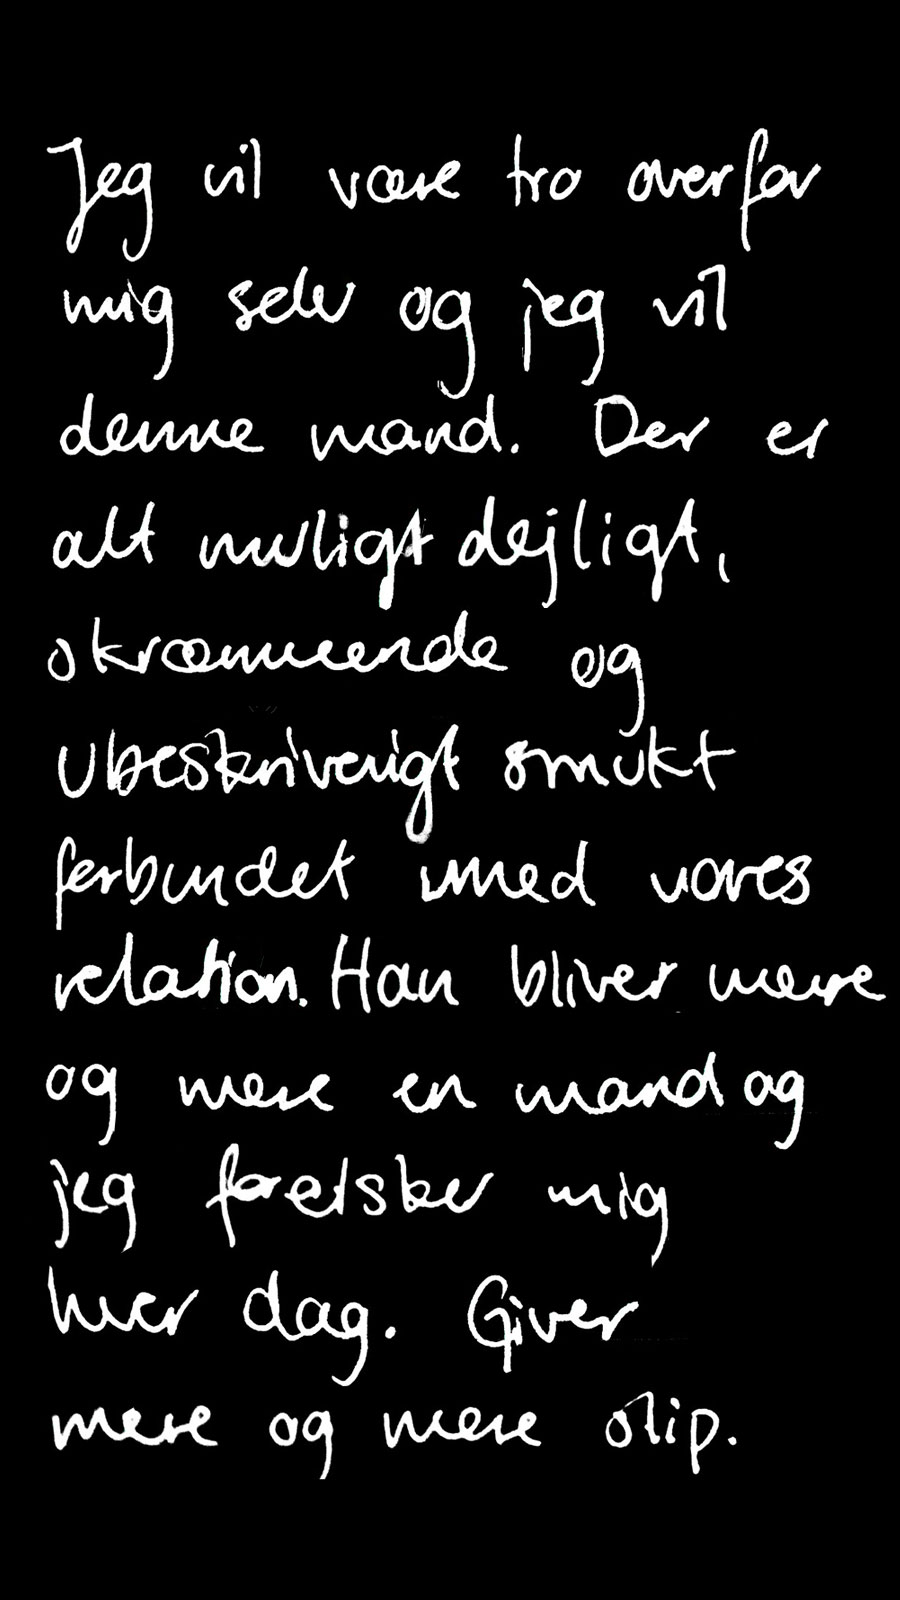 Jeg vil være tro overfor
mig selv og jeg vil
denne mand. Der er
alt muligt dejligt,
skræmmende og
ubeskriveligt smukt
forbundet med vores
relation. Han bliver mere
og mere en mand og
jeg forelsker mig
hver dag. Giver
mere og mere slip.